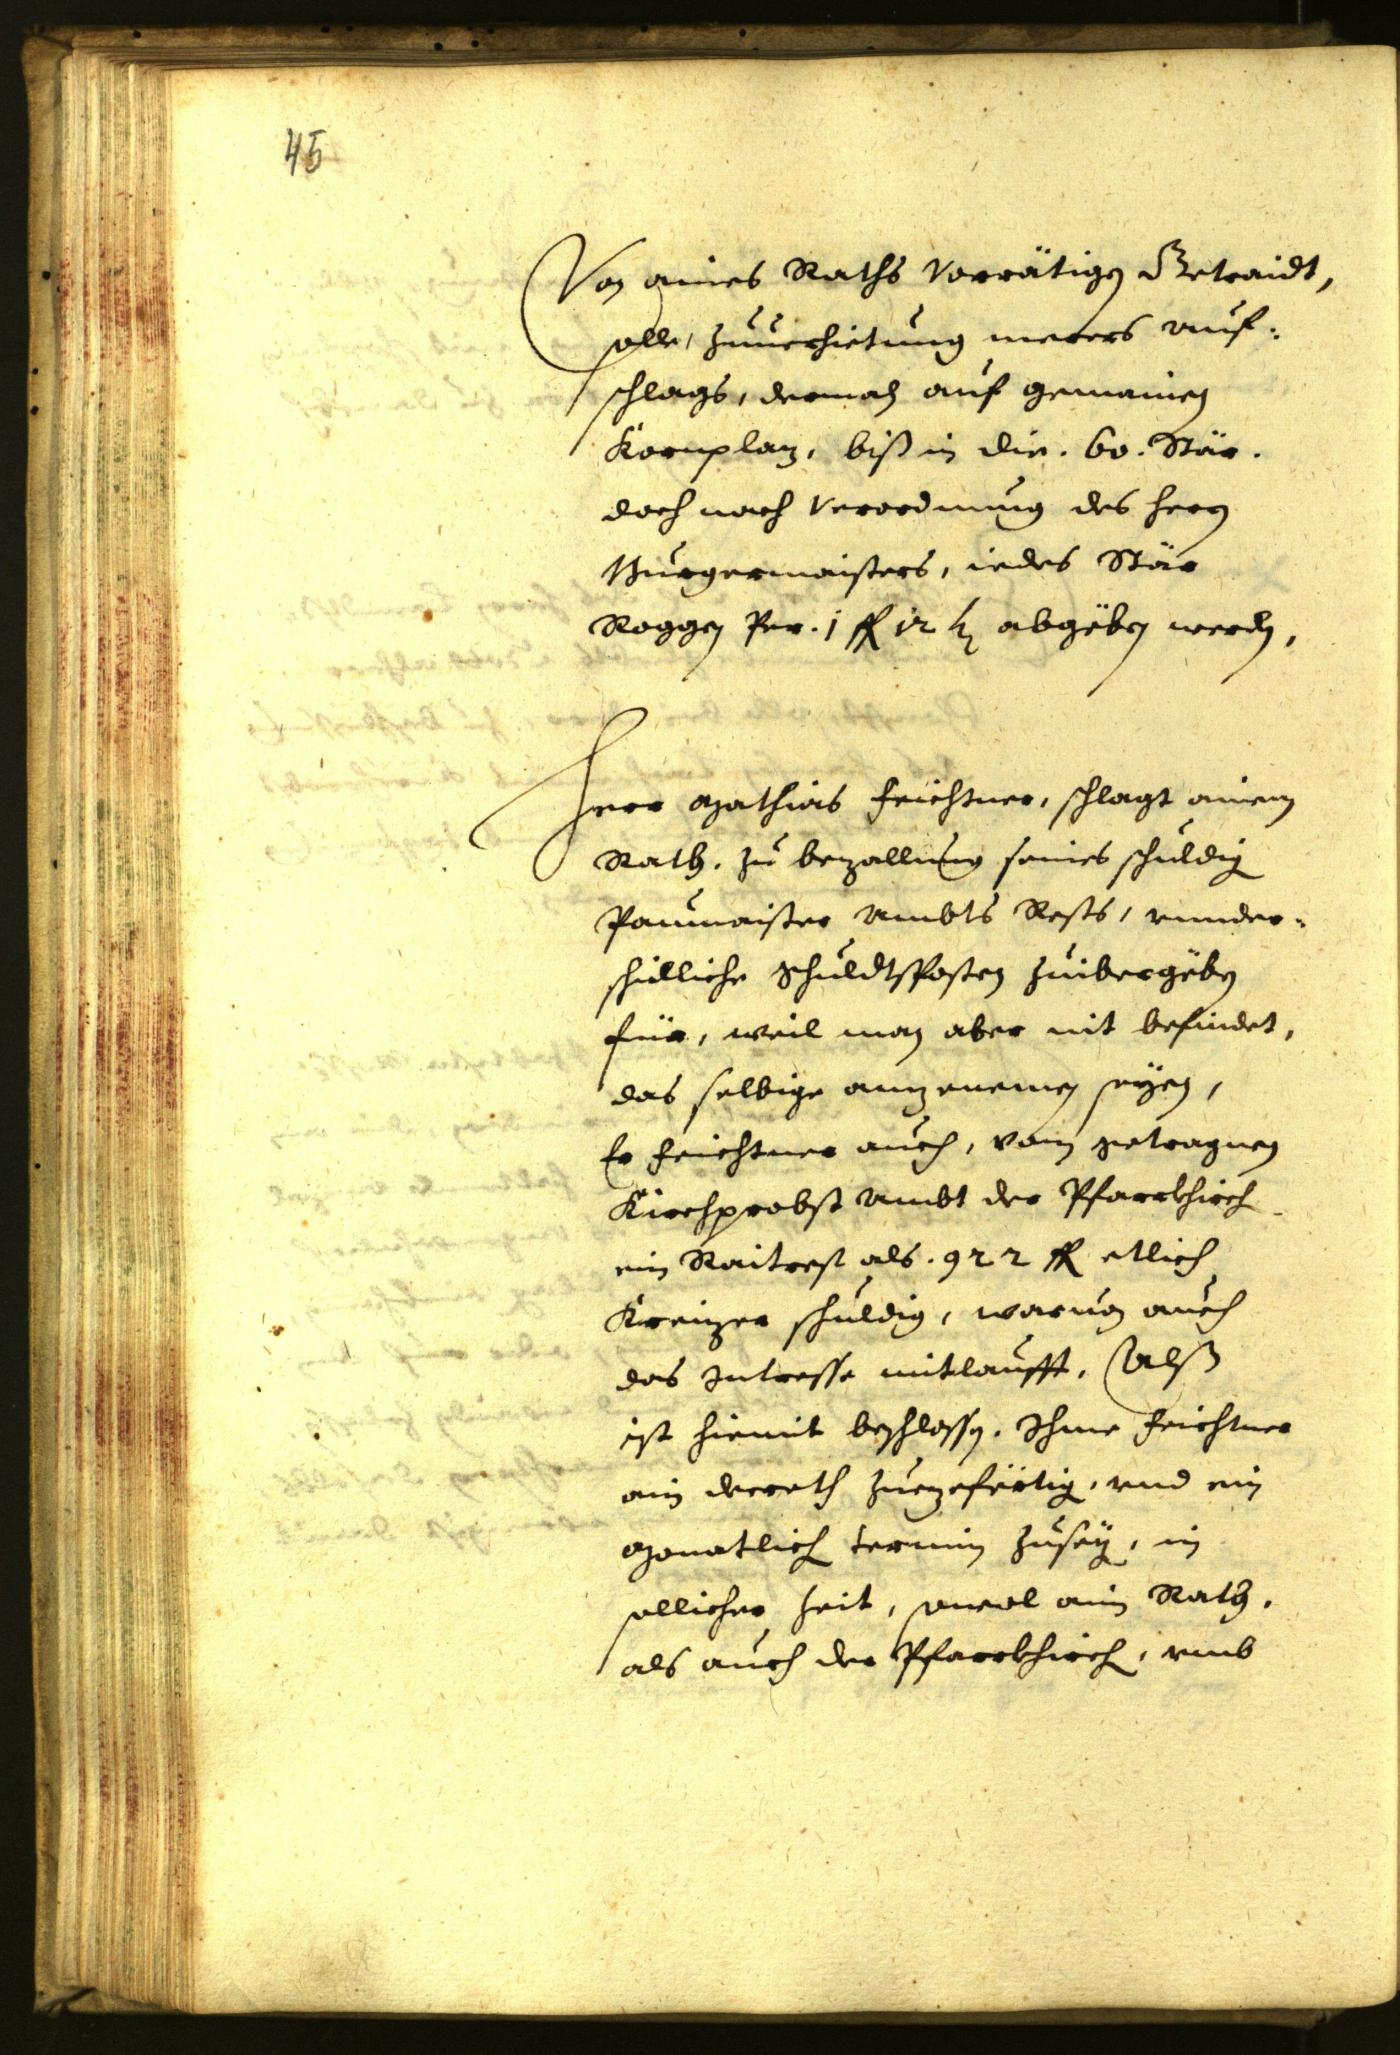 45
Von aines Raths vorrätigen Getraidt,
solle, zuuerhietung merers auf-
schlags, dermaln auf gemainen
Kornplaz, biß in die . 60 . Stär .
doch nach verordnung des herrn
Burgermaisters, iedes Stär
Roggen Per . 1 fl 12 kr abgeben werden,
Herr Mathias Feichtner, schlagt ainem
Rath, zu bezallung seines schuldig
Paumaister Ambts Rests, vnnder-
schidliche Schuldtsposten zuibergeben
für, weil man aber nit befindet,
das selbige anzenemen seyen,
Er Feichtner auch, vom getragnen
Kirchprobst Ambt der Pfarrkhirch
ein Raitrest als . 922 fl etlich
Kreizer schuldig, waruon auch
das Intresse mitlaufft, Alß
ist hiemit beschlossen, Ihme Feichtner
ain decreth zuezefertig, vnd ein
Monatlich termin zusezen, in
sollicher Zeit, sowol aim Rath,
als auch der Pfarrkhirch, vmb